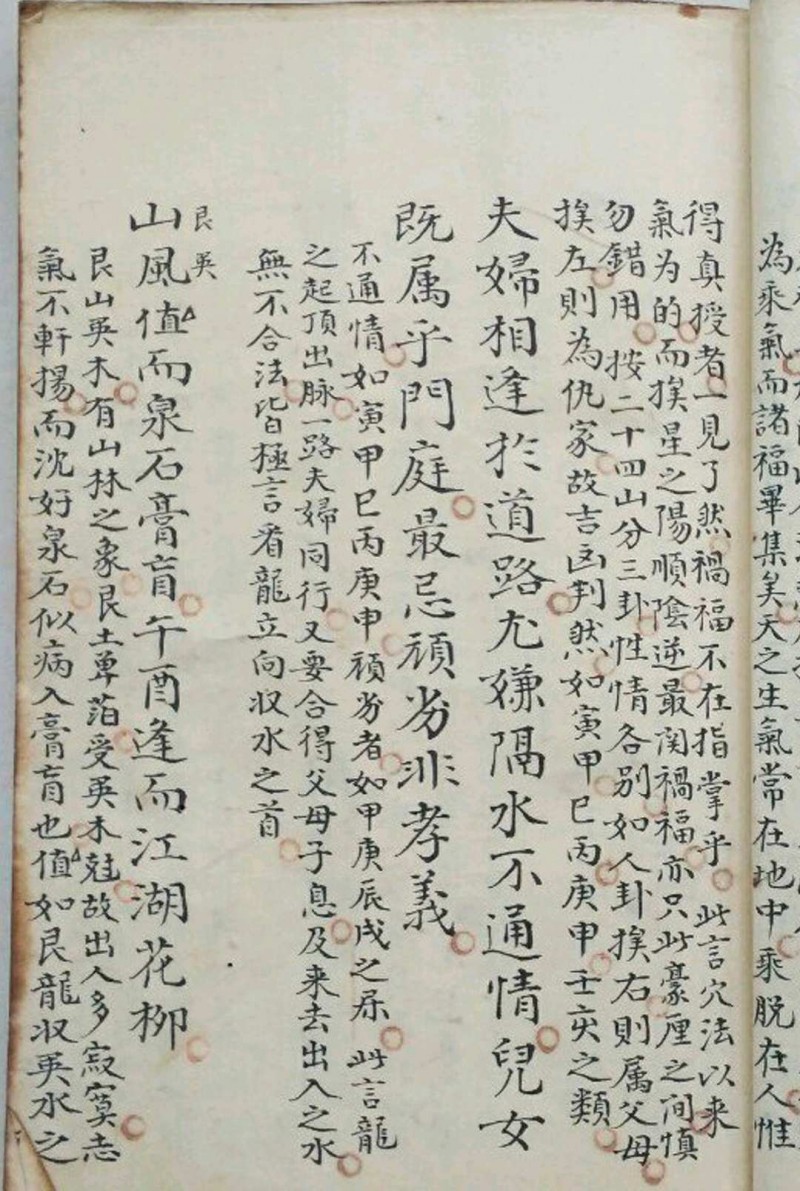 為乘氣而諸福畢集矣天之生氣常在地中乘脱在人惟
得真授者一見了然禍福不在指掌乎此言穴法以来
氣为的而挨星之陽順陰逆最関禍福亦只此豪厘之间慎
勿錯用按二十四山分三卦性情各别如人卦挨右則属父母
挨左則為仇家故吉凶判然如寅甲巳丙庚申壬亥之類
夫婦相逢於道路尤嫌隔水不通情兒女
既属乎門庭最忌頑劣非孝義
不通情如寅甲巳丙庚申頑劣者如甲庚辰戌之屎此言龍
之起頂出脉一路夫婦同行又要合得父母子息及来去出入之水
無不合法皆極言看龍立向收水之首
艮巽
山風值而泉石膏盲午酉逢而江湖花柳
艮山巽木有山林之象艮土卑萡受巽木尅故出入多寂寞志
氣不軒揚而沈好泉石似病入膏盲也值如艮龍收巽水之